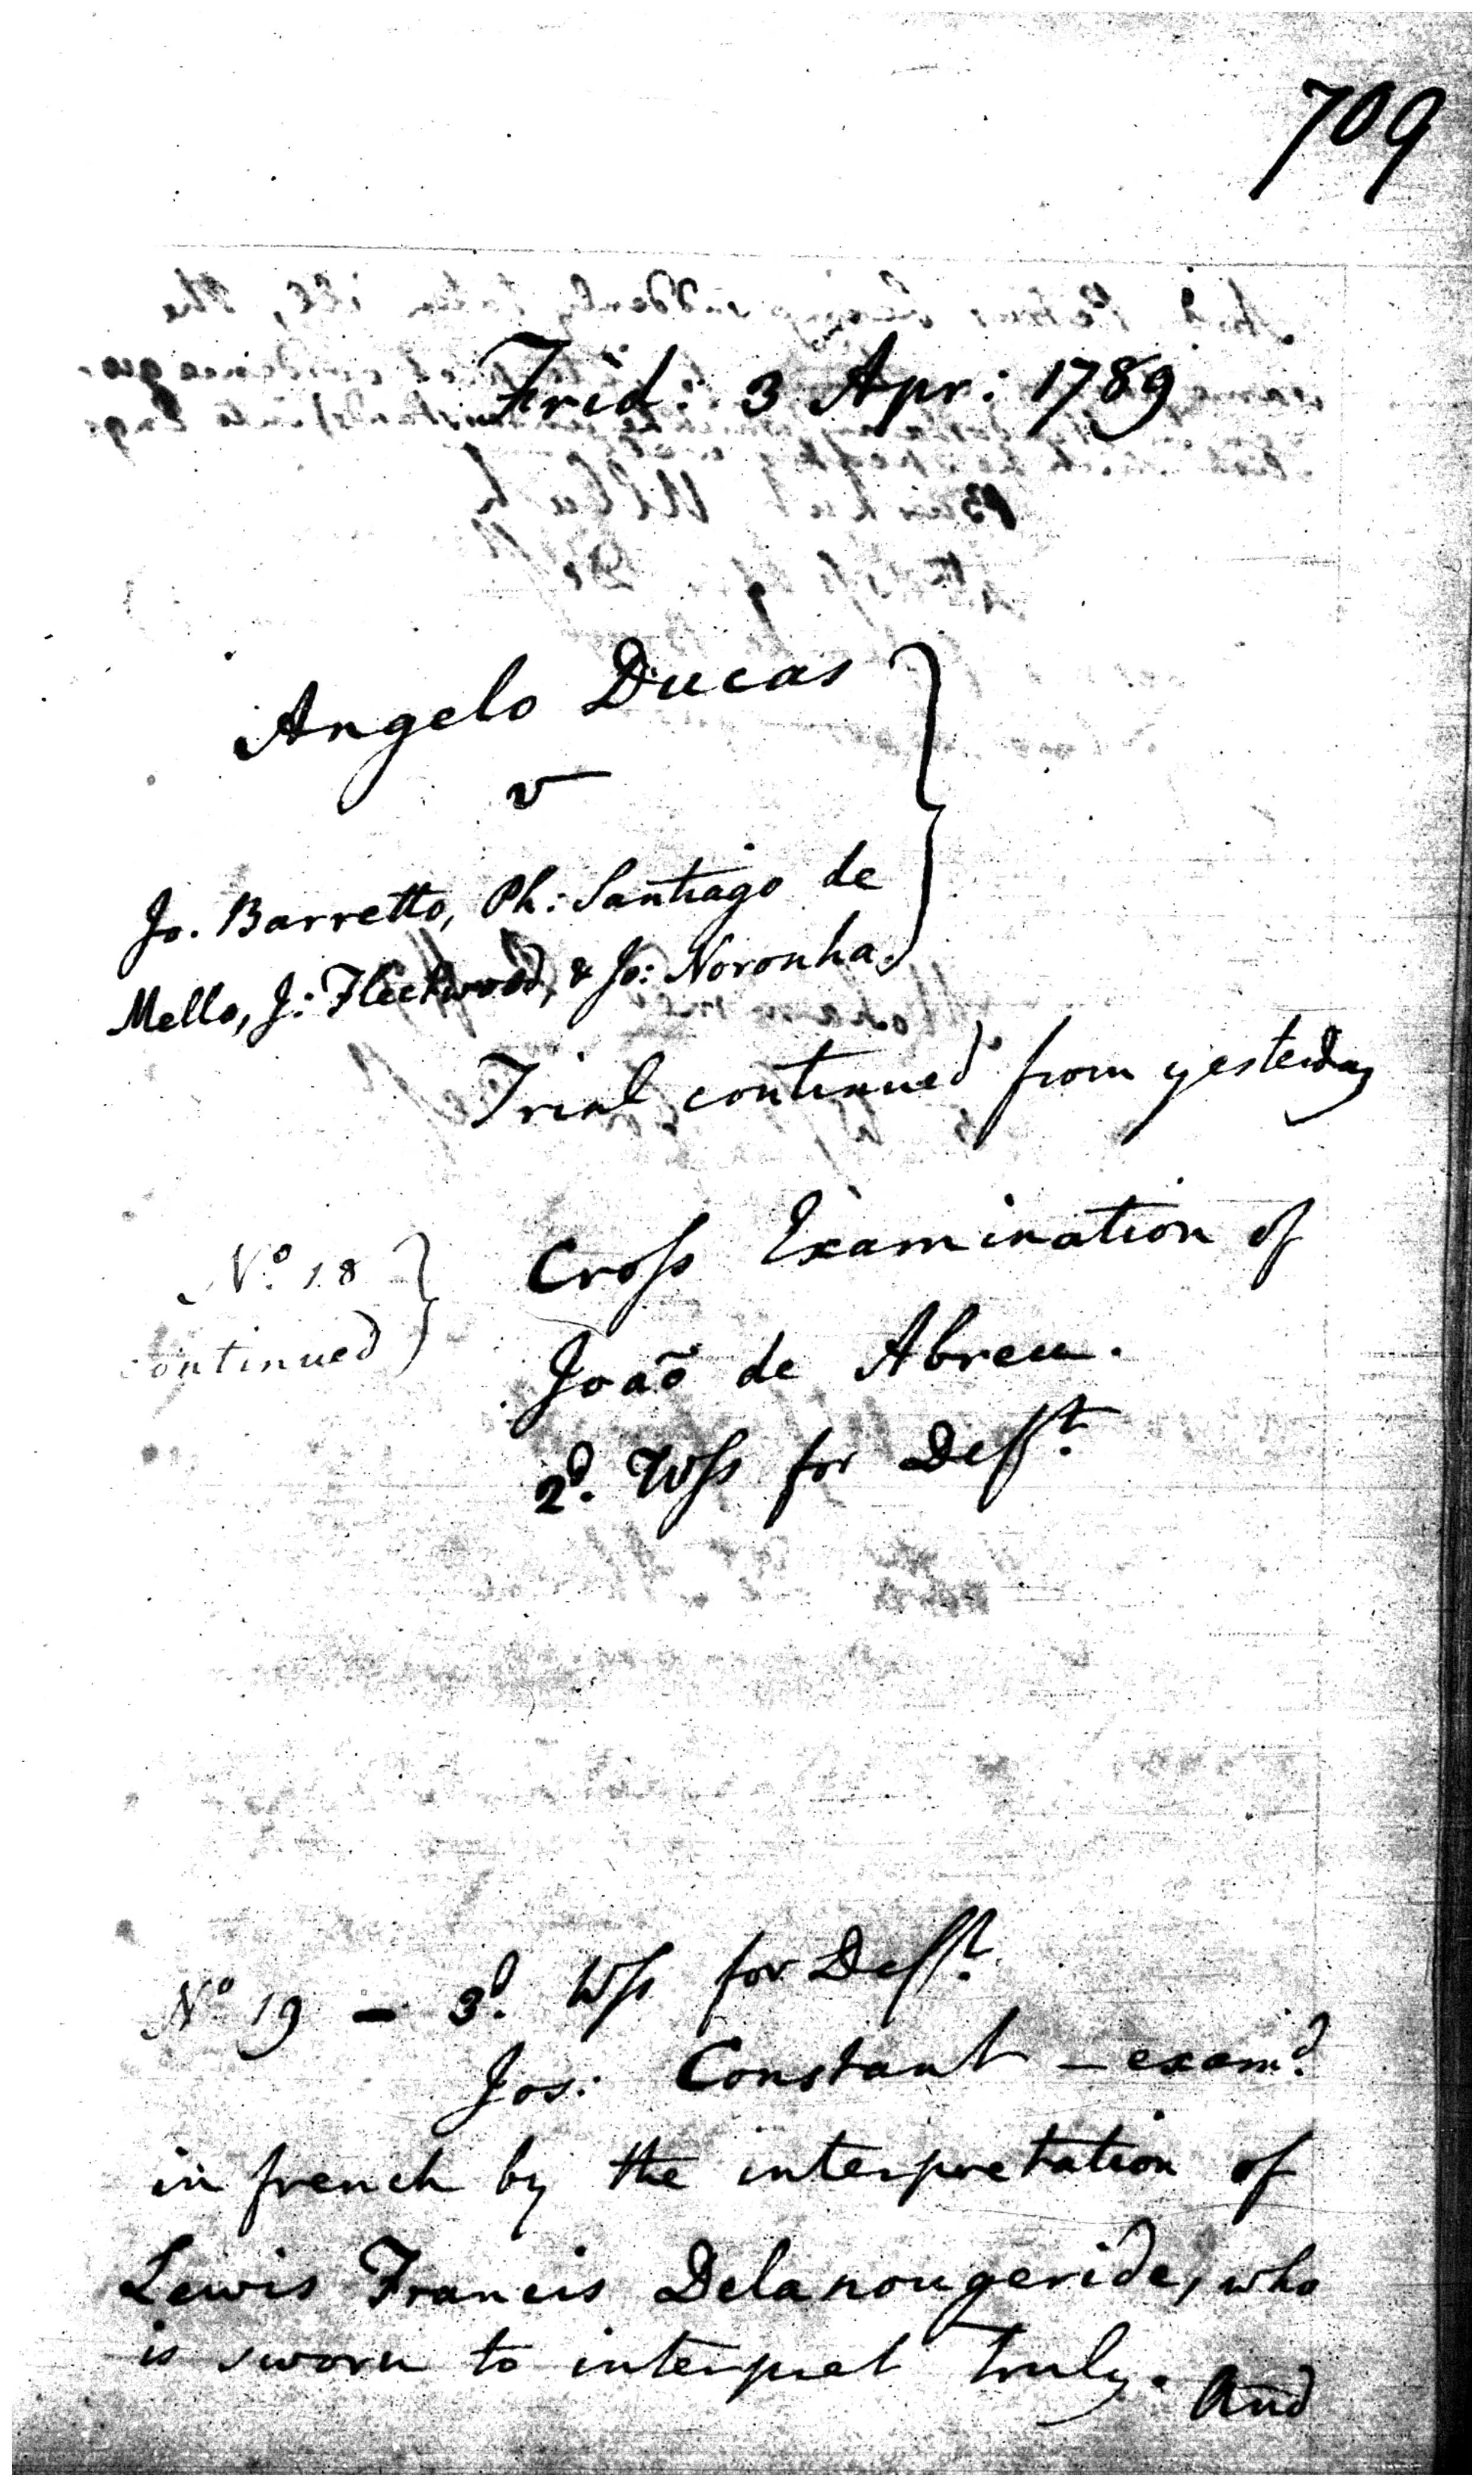 709
Frid: 3 Apr: 1789
Angelo Ducas
v
Jo. Barretto, Ph: Santiago de
Mello, J: Fleetwood, & Jo: Noronha.
Trial continued from yesterday
No. 18
continued
Cross Examination of
Joaõ de Abreu.
2d. Wss for Defft.
No 19 — 3d. Wss for Defft.
Jos: Constant — examd.
in french by the interpretation of
Lewis Francis Delanougeride, who
is sworn to interpret truly. And